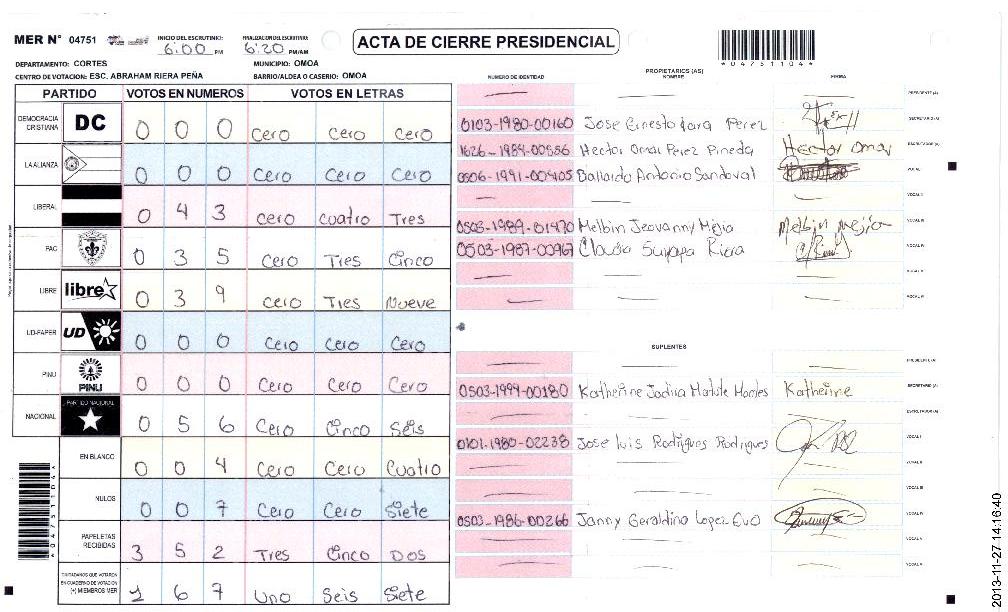 MER N° 04751
INICIO DEL ESCRUTINIO: 6:00 PM
FINALIZACION DEL ESCRUTINIO: 6:20 PM/AM
ACTA DE CIERRE PRESIDENCIAL
*04751104*
DEPARTAMENTO: CORTES
MUNICIPIO: OMOA
CENTRO DE VOTACION: ESC. ABRAHAM RIERA PEÑA
BARRIO/ALDEA O CASERIO: OMOA
PARTIDO VOTOS EN NUMEROS VOTOS EN LETRAS
DEMOCRACIA CRISTIANA DC 0 0 0 Cero Cero Cero
LA ALIANZA 0 0 0 Cero Cero Cero
LIBERAL 0 4 3 Cero Cuatro Tres
PAC 0 3 5 Cero Tres Cinco
LIBRE libre 0 3 9 Cero Tres Nueve
UD-FAPER UD 0 0 0 Cero Cero Cero
PINU PINU 0 0 0 Cero Cero Cero
NACIONAL PARTIDO NACIONAL 0 5 6 Cero Cinco Seis
EN BLANCO 0 0 4 Cero Cero Cuatro
NULOS 0 0 7 Cero Cero Siete
PAPELETAS RECIBIDAS 3 5 2 Tres Cinco Dos
CIUDADANOS QUE VOTARON EN CUADERNO DE VOTACION (+) MIEMBROS MER 1 6 7 Uno Seis Siete
*04751104*
PROPIETARIOS (AS)
NUMERO DE IDENTIDAD NOMBRE FIRMA
PRESIDENTE (A)
0103-1980-00160 Jose Ernesto Jara Perez SECRETARIO (A)
1626-1989-00556 Hector Omar Perez Pineda Hector Omar ESCRUTADOR (A)
0506-1991-00405 Antonio Sandoval VOCAL I
VOCAL II
0503-1989-01470 Melbin Jeovanny Mejia Melbin Mejia VOCAL III
0503-1987-00967 Claudia Riera VOCAL IV
VOCAL V
VOCAL VI
SUPLENTES
PRESIDENTE (A)
0503-1994-00180 Katherine Matute Katherine SECRETARIO (A)
ESCRUTADOR (A)
0101-1980-02238 Jose Luis Rodrigues Rodrigues VOCAL I
VOCAL II
VOCAL III
0503-1986-00266 Janny Geraldina Lopez VOCAL IV
VOCAL V
VOCAL VI
2013-11-27 14:16:40